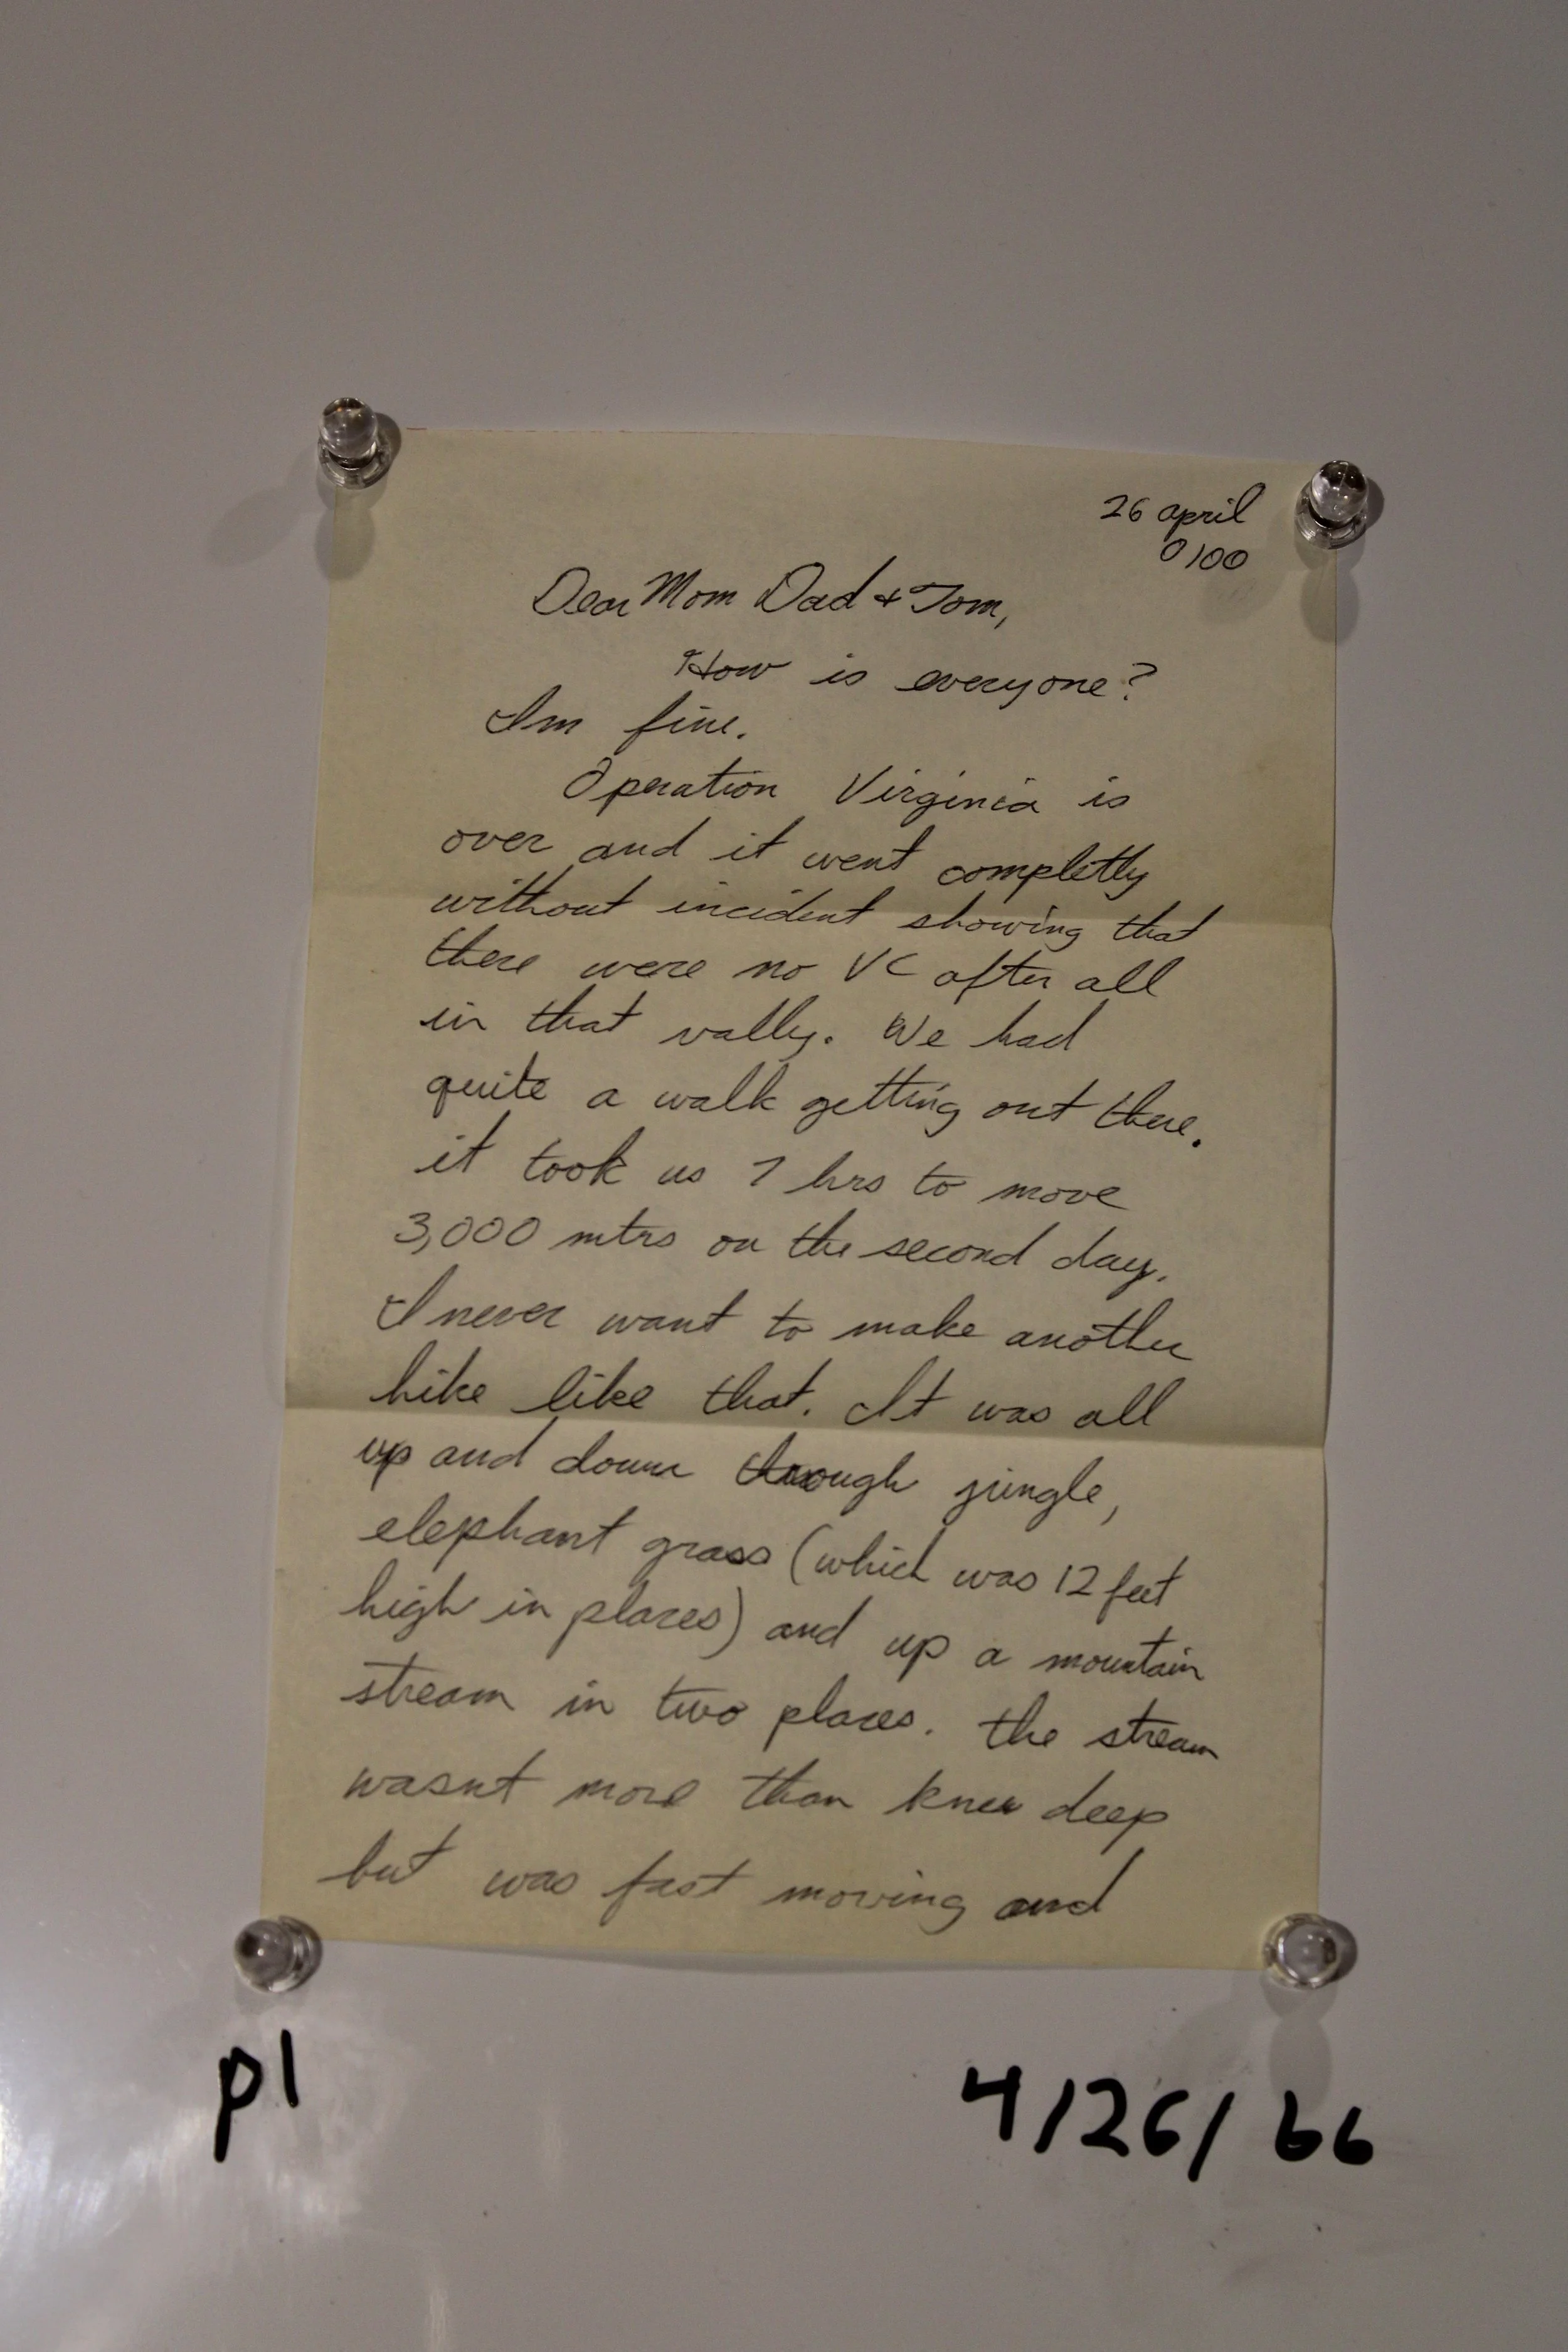 26 april
0100
Dear Mom Dad + Tom,
How is everyone?
Im fine.
Operation Virginia is
over and it went completly
without incident showing that
there were no VC after all
in that vally. We had
quite a walk getting out there.
it took us 7 hrs to move
3,000 mtrs on the second day.
I never want to make another
hike like that. It was all
up and down through jungle,
elephant grass (which was 12 feet
high in places) and up a mountain
stream in two places. the stream
wasnt more than knee deep
but was fast moving and
p1
4/26/66